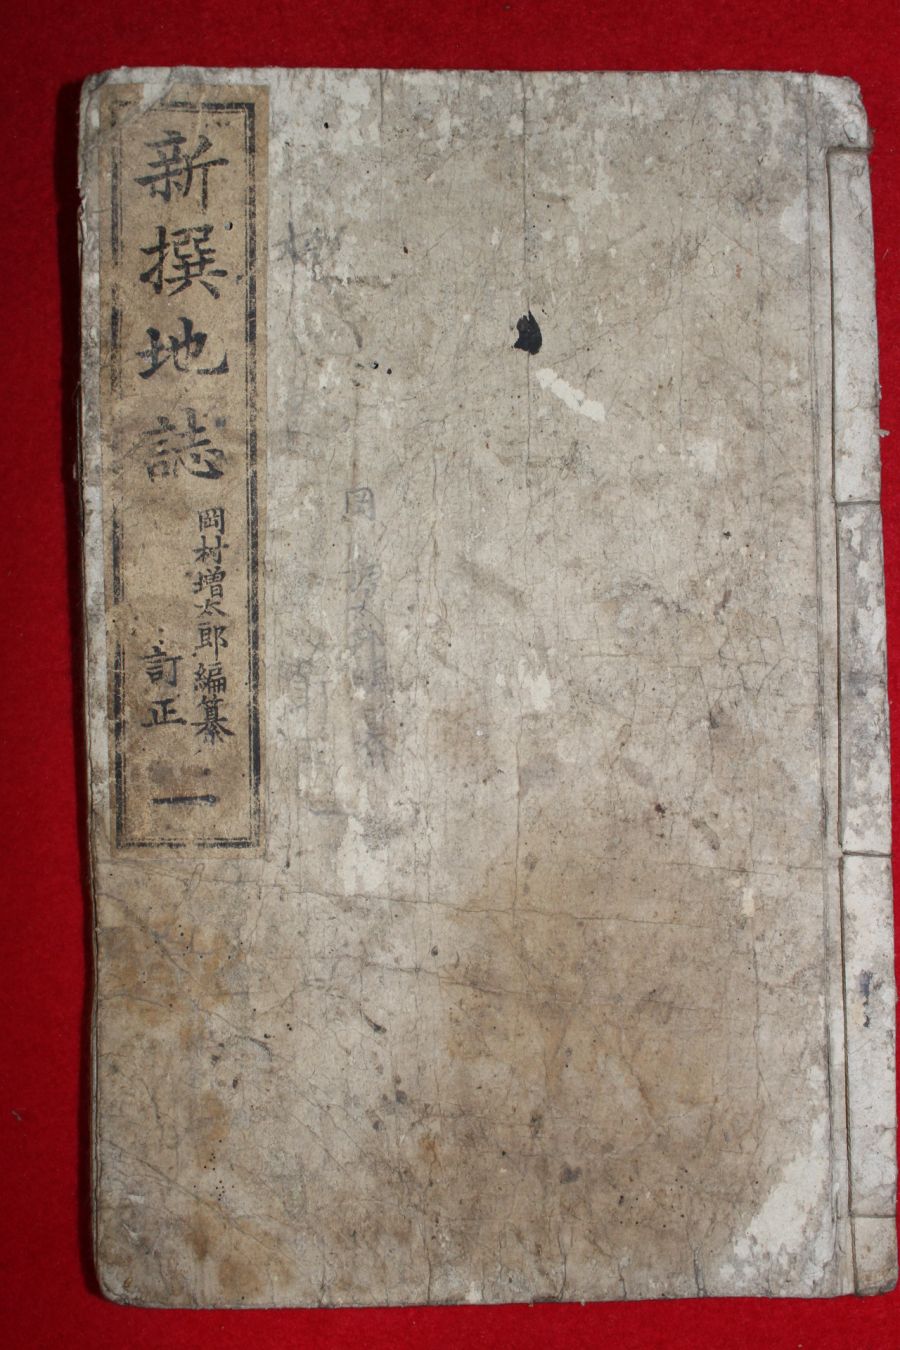 新撰地誌
岡村増太郎編纂
訂正
二